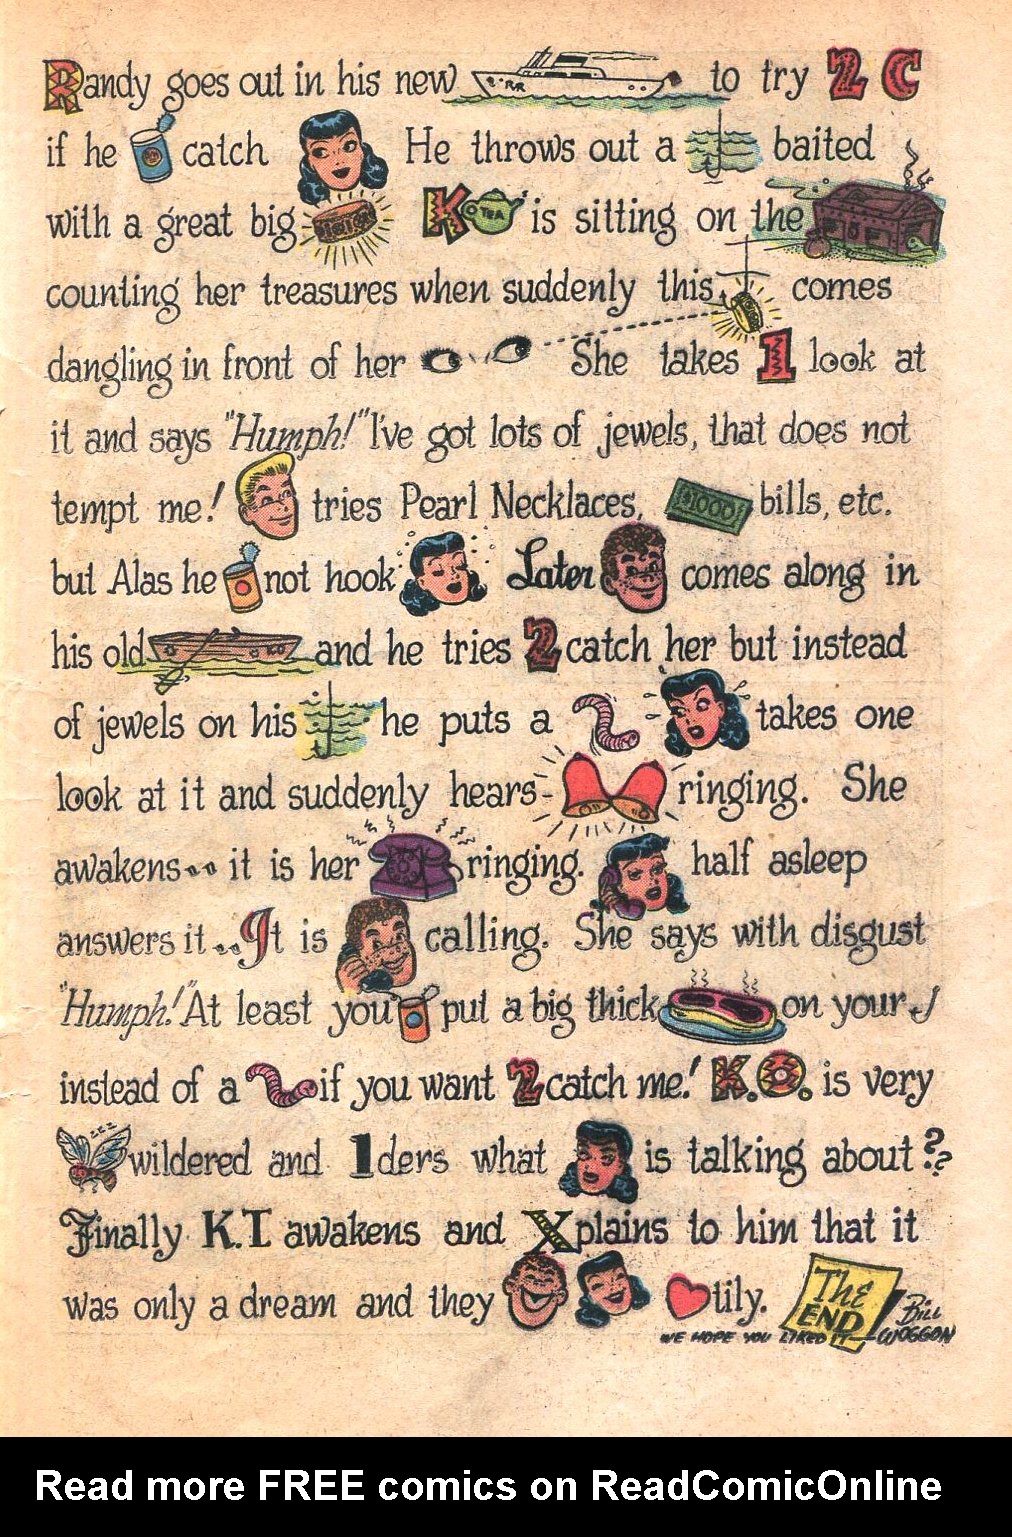 Randy goes out in his new RR to try 2 C
if he can catch He throws out a baited
with a great big K TEA is sitting on the
counting her treasures when suddenly this comes
dangling in front of her She takes 1 look at
it and says "Humph!" I've got lots of jewels, that does not
tempt me! tries Pearl Necklaces, $1000 bills, etc.
but Alas he not hook Later comes along in
his old and he tries 2 catch her but instead
of jewels on his he puts a takes one
look at it and suddenly hears- ringing. She
awakens.. it is her ringing. half asleep
answers it .. It is calling. She says with disgust
"Humph!" At least you put a big thick on your
instead of a if you want 2 catch me! K.O. is very
wildered and 1ders what is talking about??
Finally K.T awakens and Xplains to him that it
was only a dream and they tily. The END Bill Woggon
WE HOPE YOU LIKED IT—
Read more FREE comics on ReadComicOnline